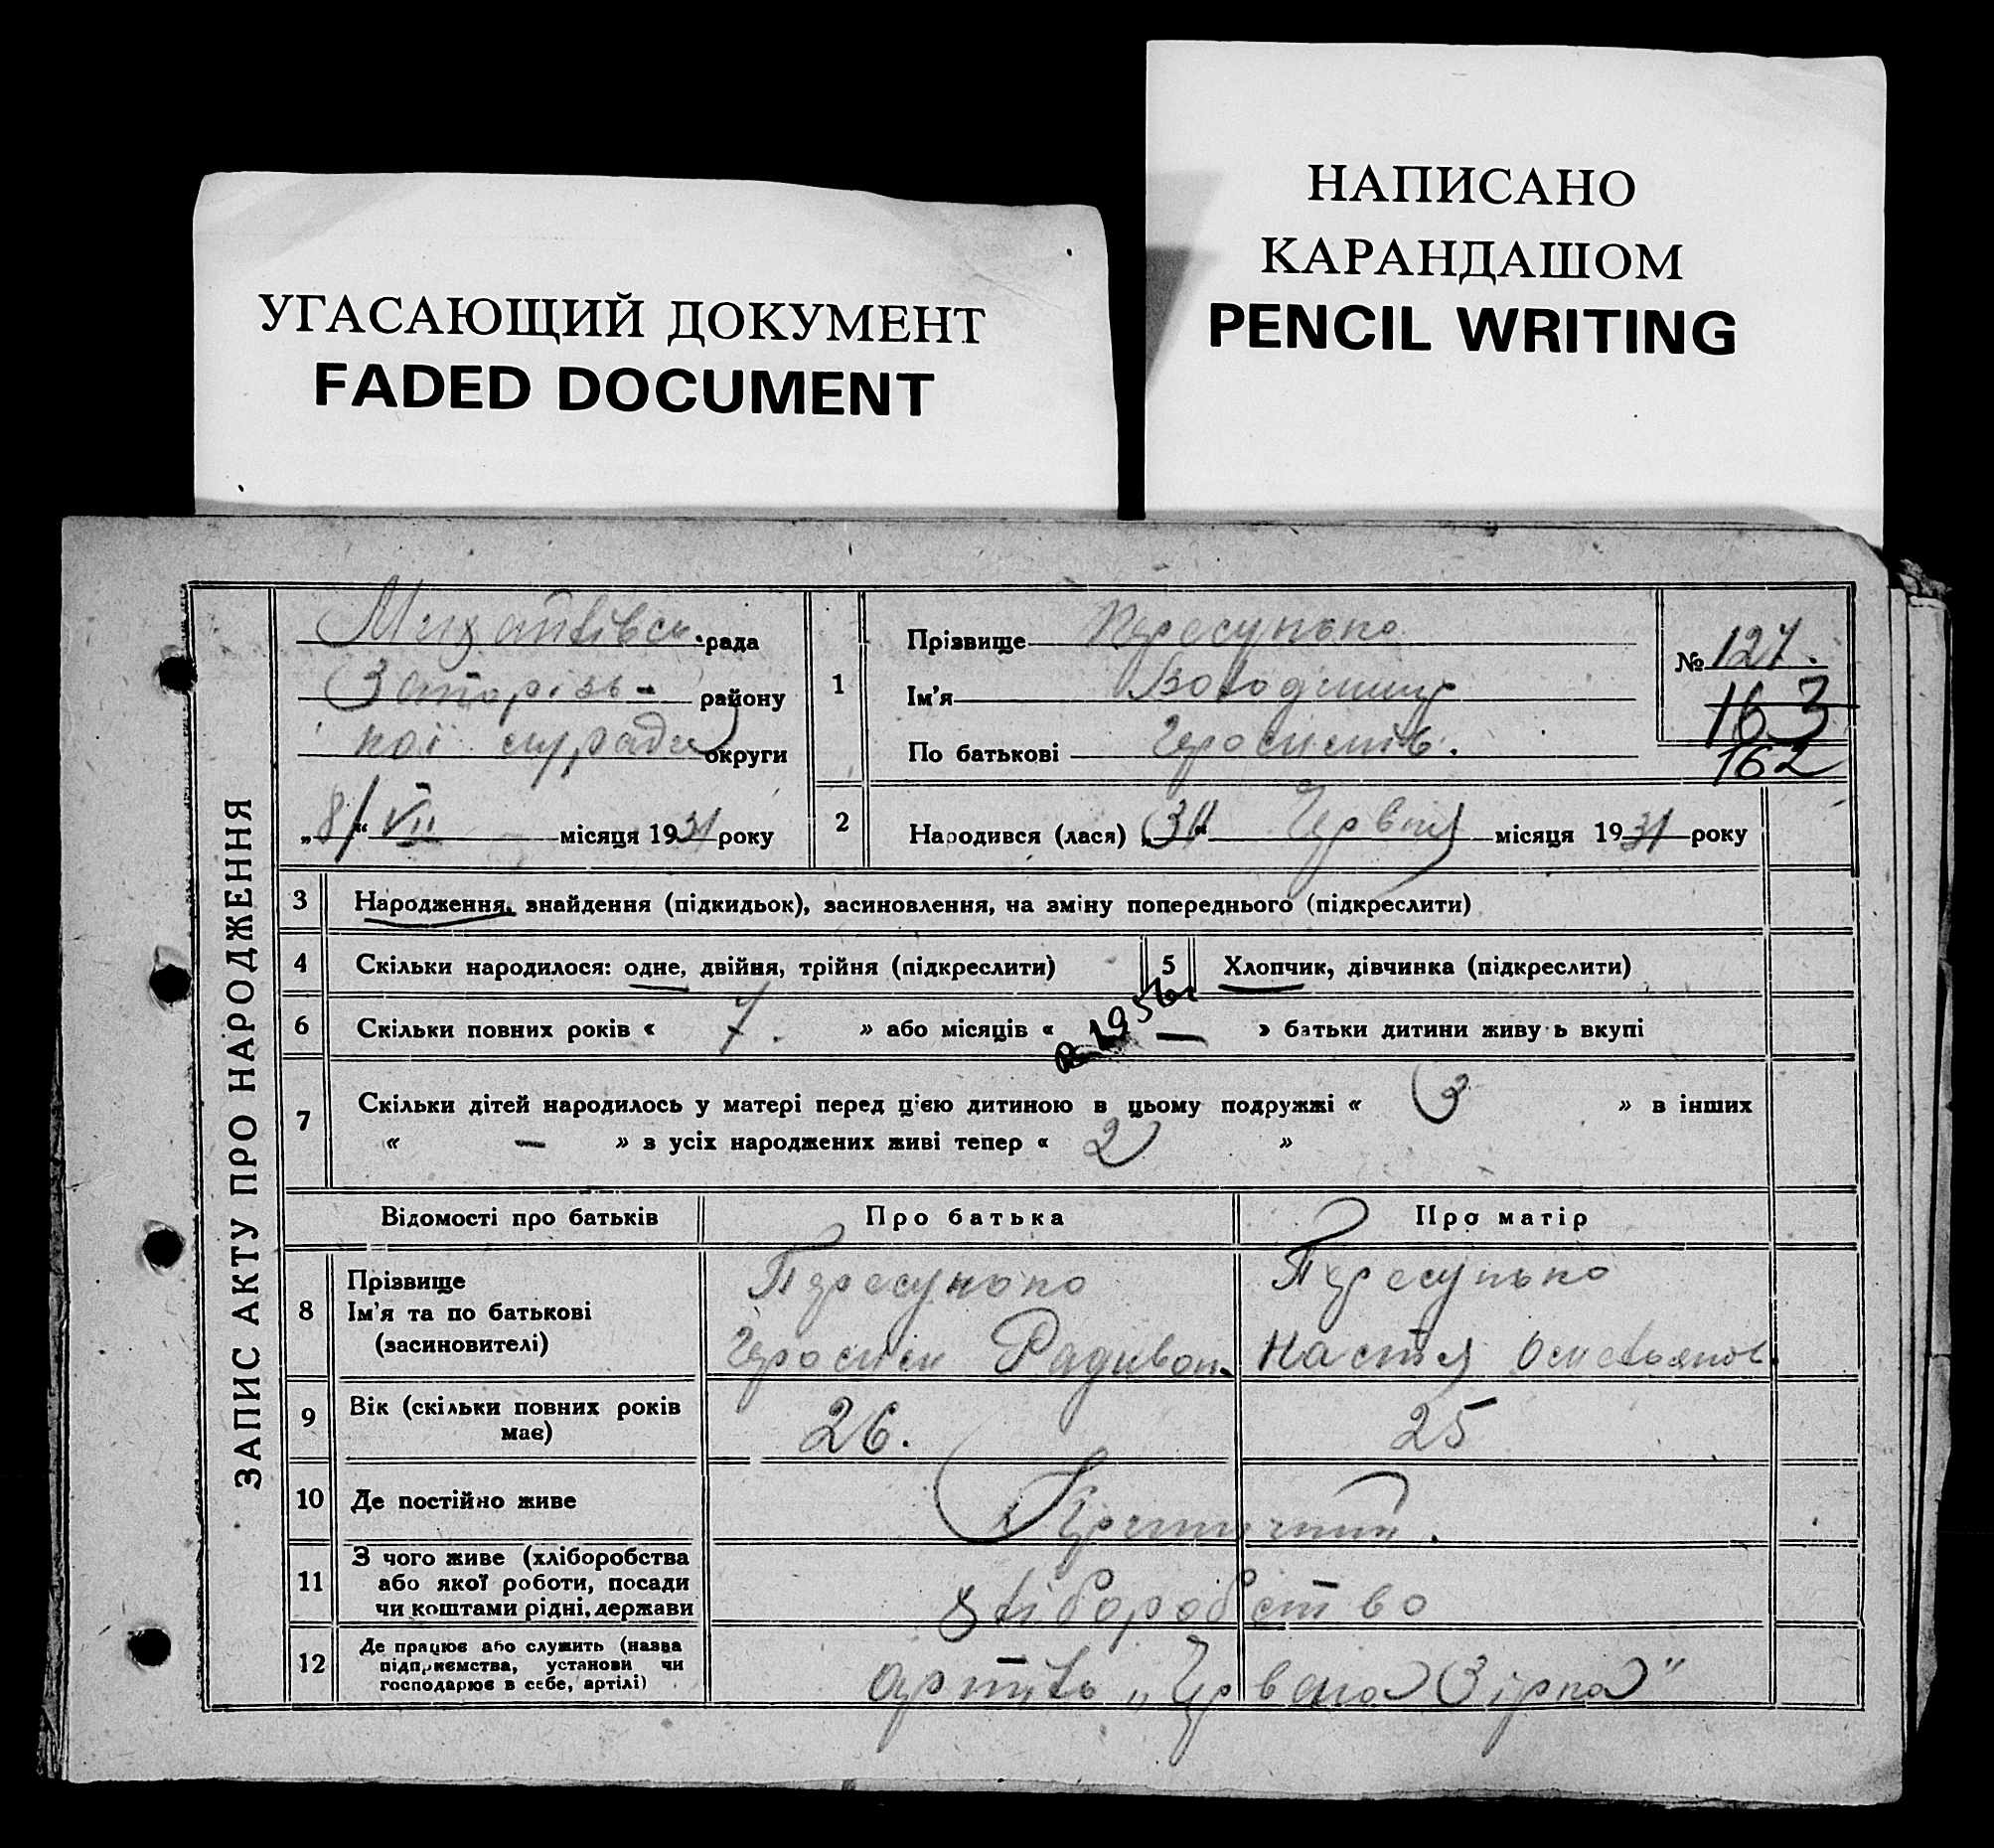 УГАСАЮЩИЙ ДОКУМЕНТ
FADED DOCUMENT
НАПИСАНО
КАРАНДАШОМ
PENCIL WRITING
ЗАПИС АКТУ ПРО НАРОДЖЕННЯ
Михайлівск. рада
Запорізь- району
кої міради округи
„8" VII місяця 1931 року
1
Прізвище Пересунько
Ім'я Володимир
По батькові Гераси­мів.
№ 127.
163
162
2 Народився (лася) „3" Червня місяця 1931 року
3 Народження, знайдення (підкидьок), засиновлення, на зміну попереднього (підкреслити)
4 Скільки народилося: одне, двійня, трійня (підкреслити)
5 Хлопчик, дівчинка (підкреслити)
6 Скільки повних років « 7. » або місяців « — » батьки дитини живуть вкупі
7 Скільки дітей народилось у матері перед цією дитиною в цьому подружжі « 3 » в інших
« — » з усіх народжених живі тепер « 2 »
Відомості про батьків Про батька Про матір
8 Прізвище
Ім'я та по батькові
(засиновителі)
Пересунько
Герасим Радивон.
Пересунько
Настя
9 Вік (скільки повних років
має)
26. 25
10 Де постійно живе
11 З чого живе (хліборобства
або якої роботи, посади
чи коштами рідні, держави
хліборобство
12 Де працює або служить (назва
підприємства, установи чи
господарює в себе, артілі)
артіль „Червона Зірка"